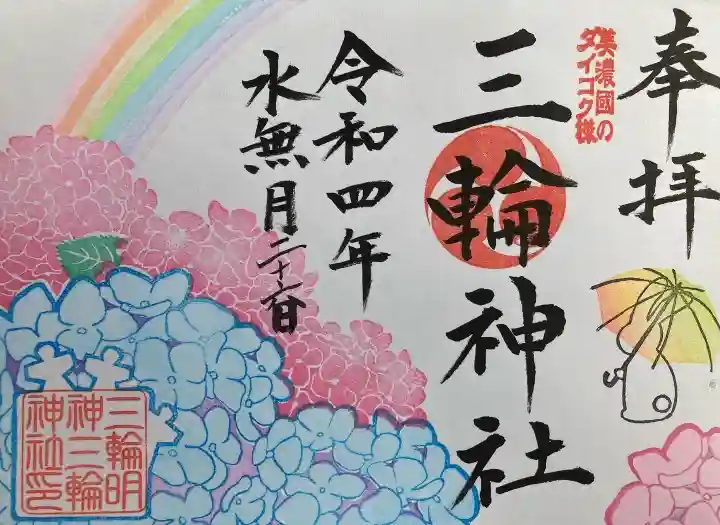 奉拝
美濃國の
ダイコク様
三輪神社
令和四年
水無月二十六日
三輪明
神三輪
神社印